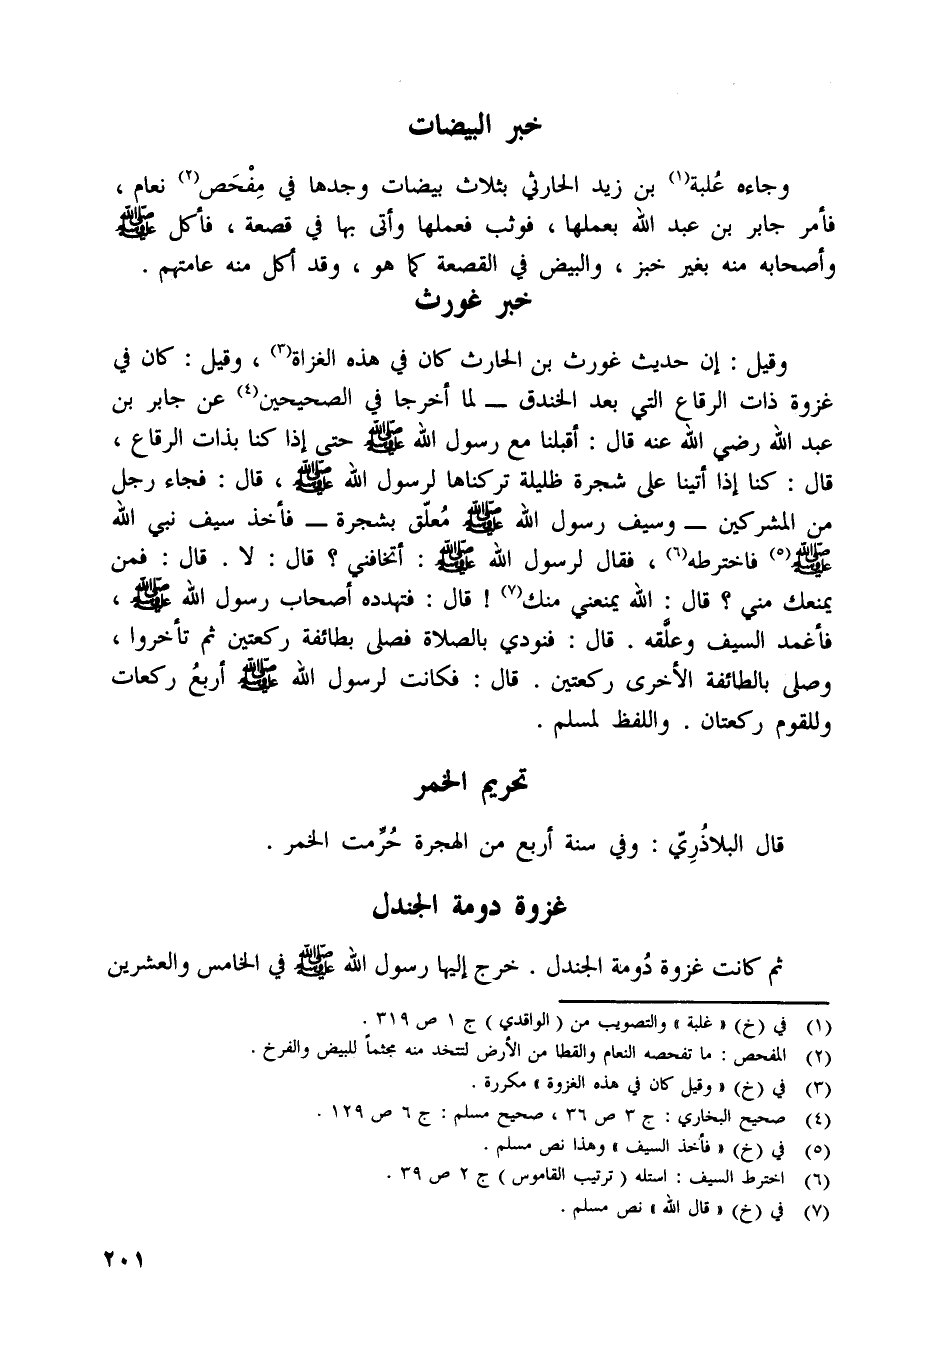 خبر البيضات
وجاءه عُلبة(١) بن زيد الحارثي بثلاث بيضات وجدها في مِفْحَص(٢) نعام ،
فأمر جابر بن عبد الله بعملها ، فوثب فعملها وأتى بها في قصعة ، فأكل ﷺ
وأصحابه منه بغير خبز ، والبيض في القصعة كما هو ، وقد أكل منه عامتهم .
خبر غورث
وقيل : إن حديث غورث بن الحارث كان في هذه الغزاة(٣) ، وقيل : كان في
غزوة ذات الرقاع التي بعد الخندق ــ لما أخرجا في الصحيحين(٤) عن جابر بن
عبد الله رضي الله عنه قال : أقبلنا مع رسول الله ﷺ حتى إذا كنا بذات الرقاع ،
قال : كنا إذا أتينا على شجرة ظليلة تركناها لرسول الله ﷺ ، قال : فجاء رجل
من المشركين ــ وسيف رسول الله ﷺ مُعلّق بشجرة ــ فأخذ سيف نبي الله
ﷺ(٥) فاخترطه(٦) ، فقال لرسول الله ﷺ : أتخافني ؟ قال : لا . قال : فمن
يمنعك مني ؟ قال : الله يمنعني منك(٧) ! قال : فتهدده أصحاب رسول الله ﷺ ،
فأغمد السيف وعلَّقه . قال : فنودي بالصلاة فصلى بطائفة ركعتين ثم تأخروا ،
وصلى بالطائفة الأخرى ركعتين . قال : فكانت لرسول الله ﷺ أربعُ ركعات
وللقوم ركعتان . واللفظ لمسلم .
تحريم الخمر
قال البلاذُرِيّ : وفي سنة أربع من الهجرة حُرِّمت الخمر .
غزوة دومة الجندل
ثم كانت غزوة دُومة الجندل . خرج إليها رسول الله ﷺ في الخامس والعشرين
(١) في (خ) « غلبة » والتصويب من ( الواقدي ) ج ١ ص ٣١٩ .
(٢) المفحص : ما تفحصه النعام والقطا من الأرض لتتخد منه مجثماً للبيض والفرخ .
(٣) في (خ) « وقيل كان في هذه الغزوة » مكررة .
(٤) صحيح البخاري : ج ٣ ص ٣٦ ، صحيح مسلم : ج ٦ ص ١٢٩ .
(٥) في (خ) « فأخذ السيف » وهذا نص مسلم .
(٦) اخترط السيف : استله ( ترتيب القاموس ) ج ٢ ص ٣٩ .
(٧) في (خ) « قال الله » نص مسلم .
٢٠١